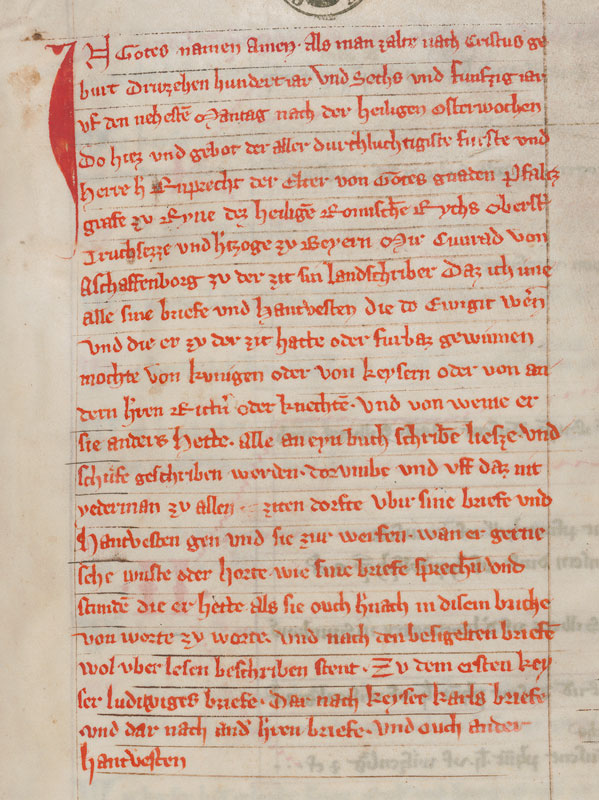 IN Gotes namen Amen. Als man zalte nach Cristus ge
burt Druzehen hundert iar vnd Sechs vnd funfzig iar
vf den nehestē Mantag nach der heiligen Osterwochen
Do hiez vnd gebot der aller durchluchtigiste furste vnd
Herre h̄ Ruprecht der Elter von Gotes gnaden Pfaltz
grafe zu Ryne dez heiligē Romischē Rychs Oberst
Truchsezze vnd h̄tzoge zu Beyern Mir Cunrad von
Aschaffenborg zu der zit sin lantschriber Daz ich ime
alle sine briefe vnd Hantvesten die do Ewigit wern
vnd die er zu der zit hatte oder furbaz gewinnen
mochte von kunigen oder von keysern oder von an
dern h̄ren Richt̄ oder knechtē. vnd von weme er
sie anders Hette. alle an eyn buch schribē liesze vnd
schufe geschriben werden. dorumbe vnd vff daz nit
yederman zu allen ziten dorfte vbir sine briefe vnd
Hantvesten gen vnd sie zur werfen. wan er gerne
sehe wuste oder horte wie sine briefe sprechen vnd
stundē die er hette als sie ouch h̄nach in disem buche
von worte zu worte. vnd nach den besigelten briefē
wol vber lesen beschriben stent. Zu dem ersten key
ser ludwiges briefe. Dar nach keyser karls briefe
vnd dar nach and̄ h̄ren briefe. vnd ouch ander
hantvesten